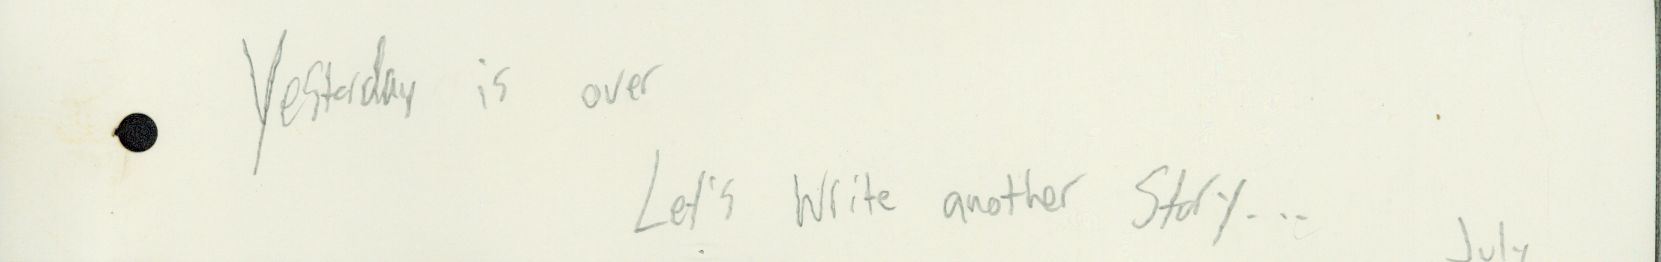 Yesterday is over
Let's Write another Story....
July